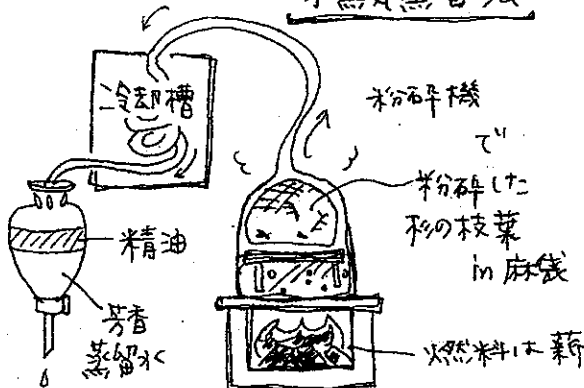 水蒸気蒸留法
冷却槽
粉砕機
で
粉砕した
杉の枝葉
in 麻袋
精油
芳香
蒸留水
燃料は薪